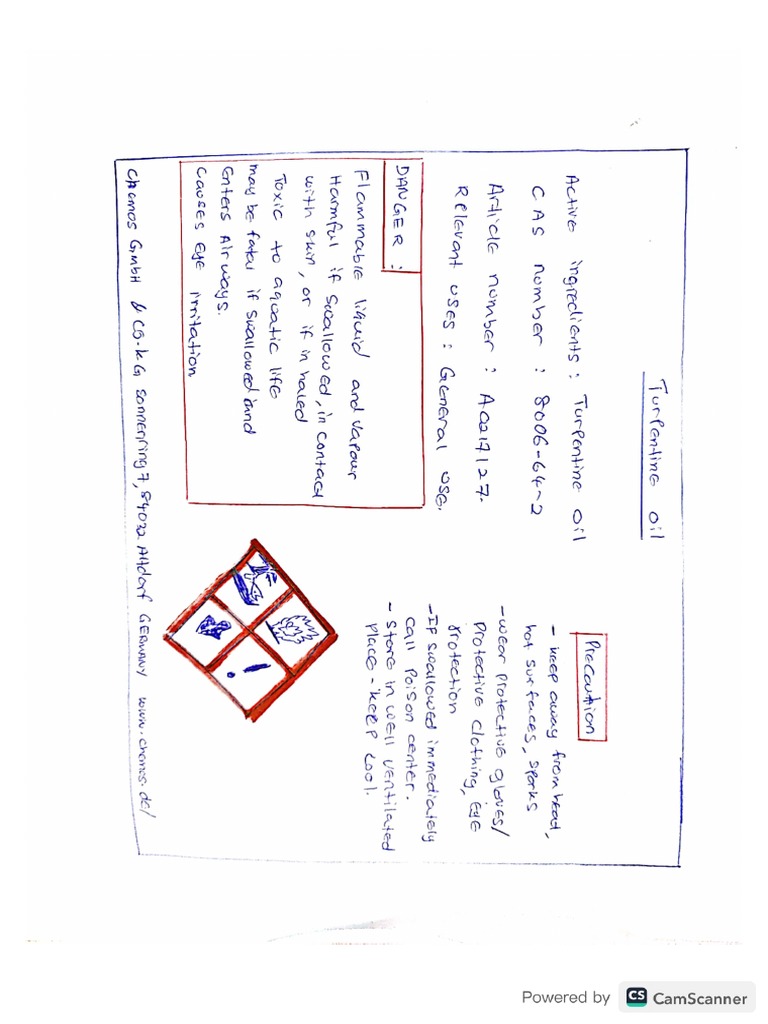 Turpentine oil
Active ingredients : Turpentine oil
CAS number : 8006-64-2
Article number : A0217127.
Relevant uses : General use.
DANGER :
Flammable liquid and vapour
Harmful if swallowed, in contact
with skin, or if in haled
Toxic to aquatic life
may be fatal if swallowed and
Enters Airways.
causes Eye irritation
Precaution
- keep away from heat,
hot surfaces, sparks
- wear protective gloves/
protective clothing, eye
protection
- If swallowed immediately
call Poison center.
- Store in well ventilated
place - keep cool.
!
chemos GmbH & CO.KG sonnenring 7, 84032 Altdorf GERMANY www.chemos.de/
Powered by CS CamScanner